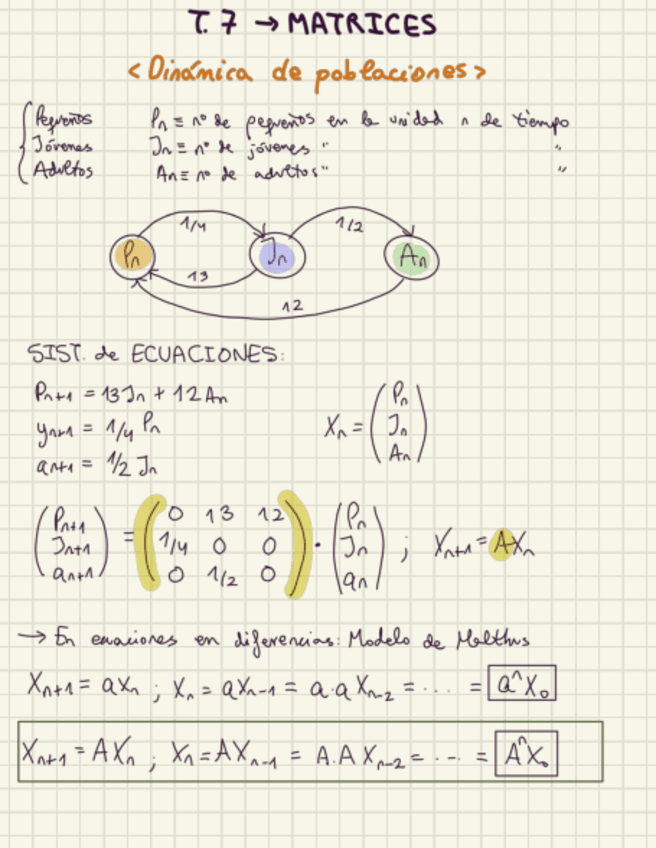 T.7 → MATRICES
< Dinámica de poblaciones >
Pequeños Pn ≡ nº de pequeños en la unidad n de tiempo
Jóvenes Jn ≡ nº de jóvenes " "
Adultos An ≡ nº de adultos " "
1/4 1/2
Pn Jn An
13
12
SIST. de ECUACIONES:
Pn+1 = 13Jn + 12An
yn+1 = 1/4 Pn
an+1 = 1/2 Jn
Xn = (Pn Jn An)
(Pn+1 Jn+1 an+1) = (0 13 12
1/4 0 0
0 1/2 0) · (Pn Jn an) ; Xn+1 = AXn
→ En ecuaciones en diferencias: Modelo de Malthus
Xn+1 = aXn ; Xn = aXn-1 = a·aXn-2 = ... = a^n X0
Xn+1 = AXn ; Xn = AXn-1 = A.A Xn-2 = ... = A^n X0